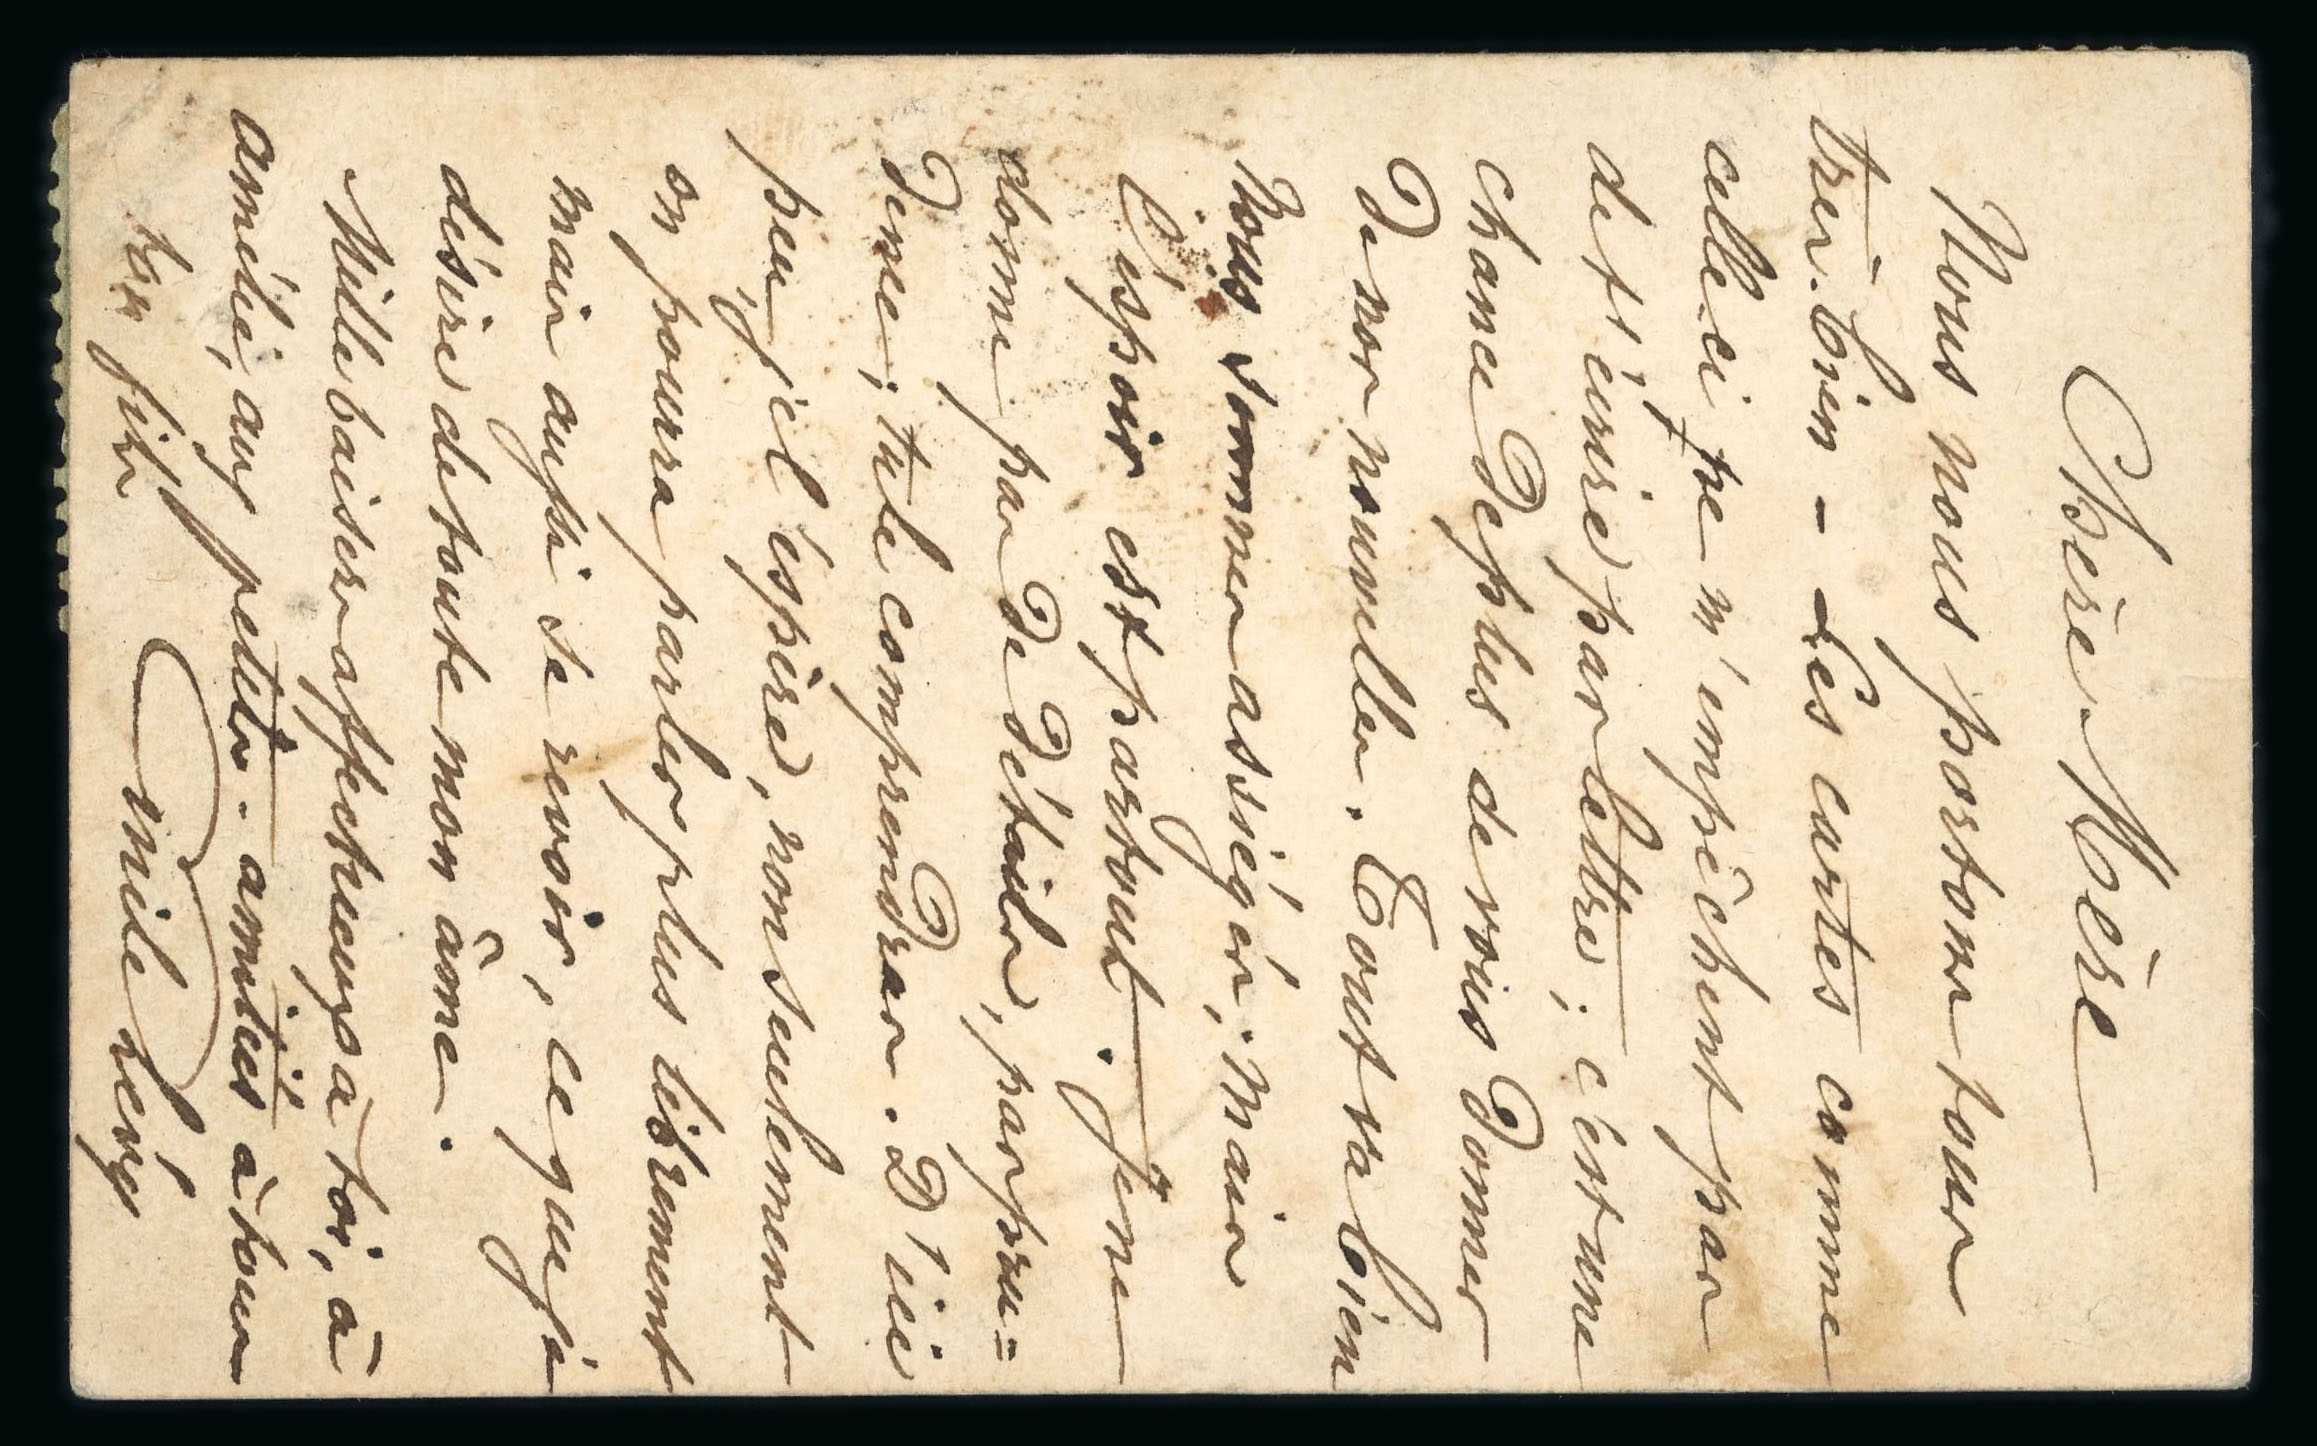 Chère Mère
Nous nous portons tous
très bien - Les cartes comme
celle-ci ne m'empêchent pas
de t'écrire par lettre; c'est une
chance de plus de vous donner
de nos nouvelles. Tout va bien
Nous sommes assiégés, mais
l'éspoir est partout. Je ne
donne pas de détails, par pru=
dence; tu le comprendras. D'ici
peu, je l'éspère, non seulement
on pourra parler plus librement
mais aussi se revoir, ce que je
désire de toute mon âme.
Mille baisers affectueux à toi, à
amélie, aux petits - amitiés à tous
ton fils Emile Lévy